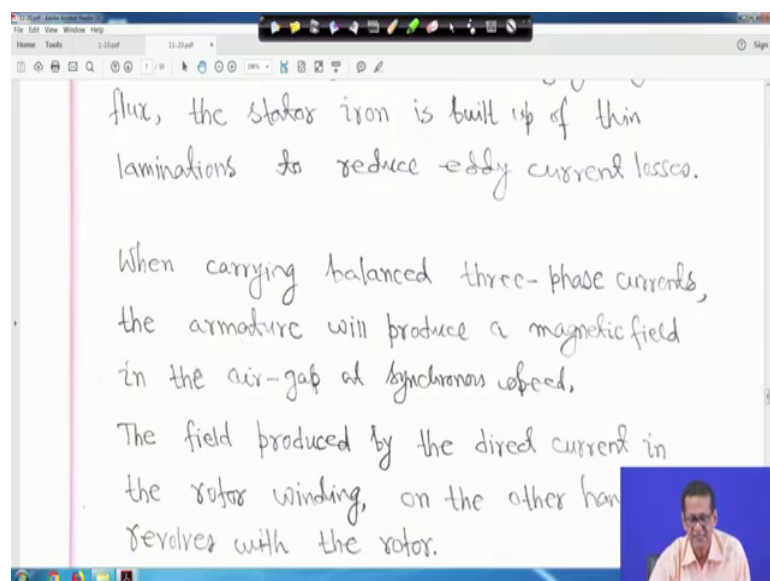 11-20.pdf - Adobe Acrobat Reader DC
File Edit View Window Help
Home Tools 1-10.pdf 11-20.pdf × Sign
7 / 10
flux, the stator iron is built up of thin
laminations to reduce eddy current losses.
When carrying balanced three-phase currents,
the armature will produce a magnetic field
in the air-gap at synchronous speed.
The field produced by the direct current in
the rotor winding, on the other han
revolves with the rotor.